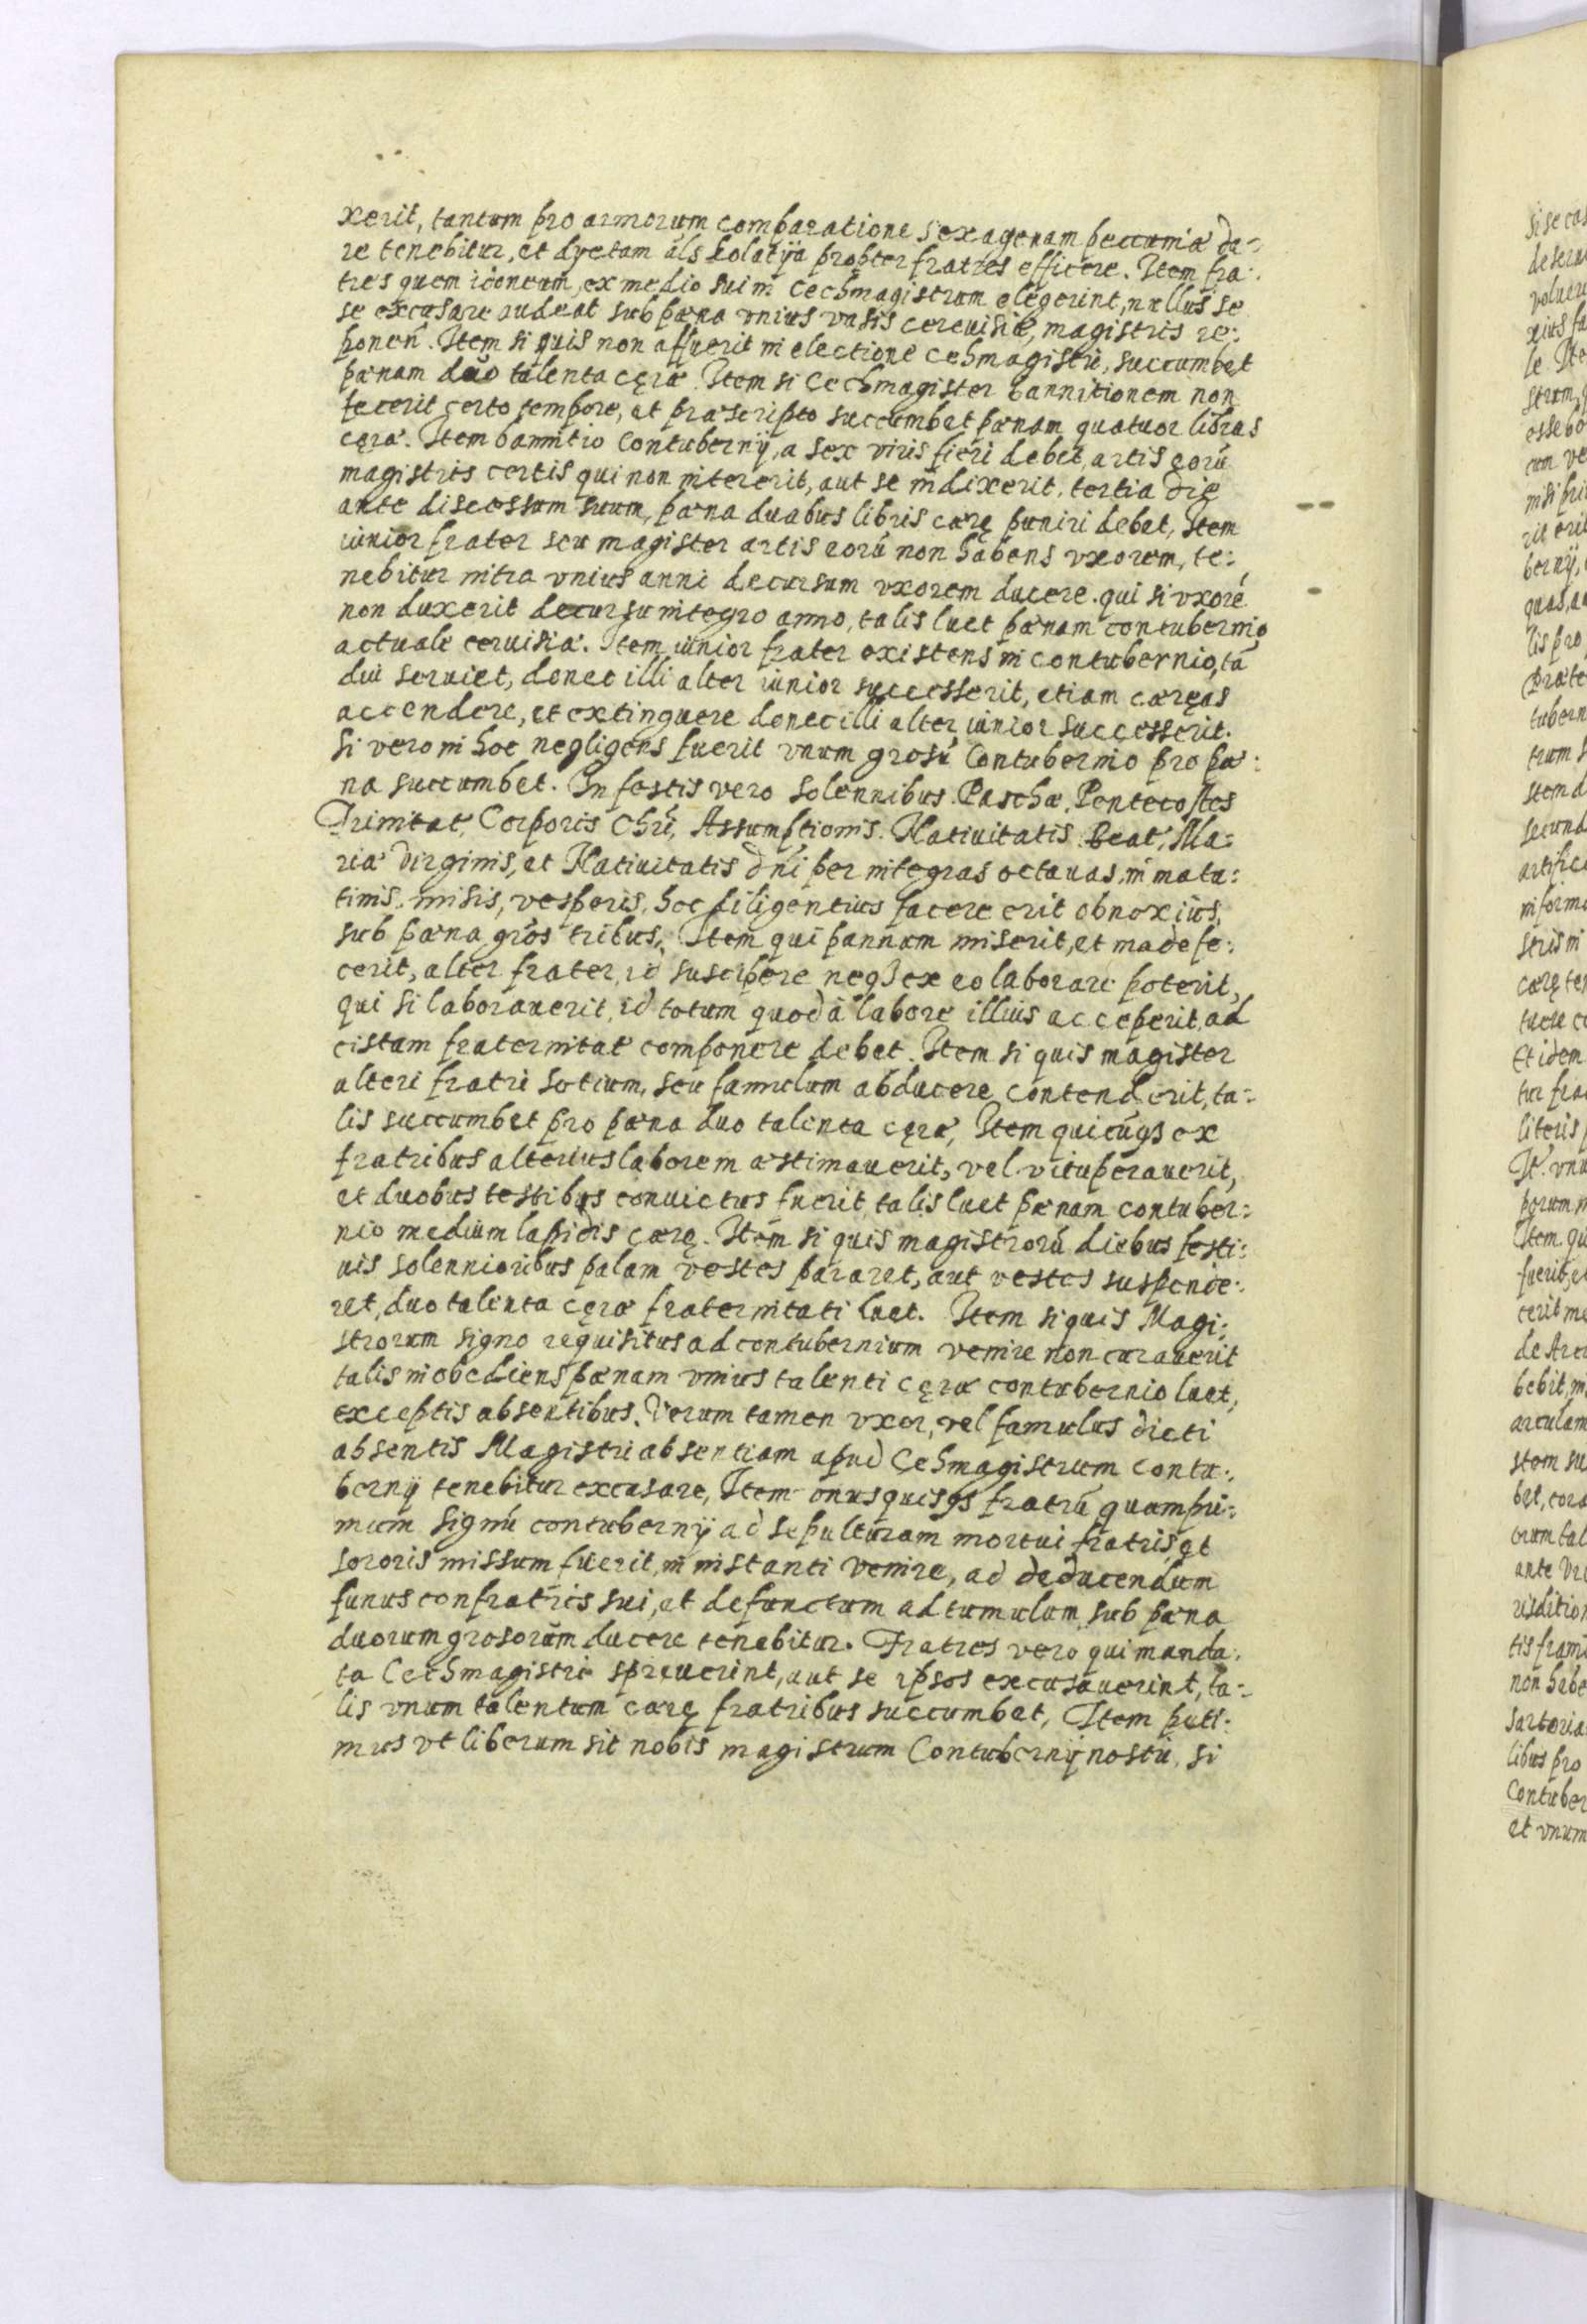 xerit, tantum pro armorum comparatione sexagenam pecuniæ da-
re tenebitur, et dyetam als kolatÿa propter fratres efficere. Item fra:
tres quem idoneum, ex medio sui in Cechmagistrum elegerint, nullus se
se excusare audeat sub pæna vnius vasis cereuisiæ, magistris re:
ponen. Item si quis non affuerit in electione cehmagistri, succumbet
pænam duo talenta cęræ. Item si Cechmagister bannitionem non
fecerit certo tempore, et præscripto succumbet pænam quatuor libras
cęræ. Item bannitio Contubernÿ, a sex viris fieri debet, artis eorũ
magistris certis qui non intererit, aut se indixerit, tertia die
ante discessum suum, pæna duabus libris cærę puniri debet, Item
iunior frater seu magister artis eorũ non habens vxorem, te:
nebitur intra vnius anni decursum vxorem ducere. qui si vxorẽ
non duxerit decursu integro anno, talis luet pænam contubernio
actuale ceruisiæ. Item iunior frater existens in contubernio, tã
diu seruiet, donec illi alter iunior successerit, etiam cæreas
accendere, et extinguere donec illi alter iunior successerit.
Si vero in hoc negligens fuerit vnum grosũ Contubernio pro pæ:
na succumbet. In festis vero solennibus. Paschæ, Pentecostes
Trinitat, Corporis Chri, Assumptionis. Natiuitatis Beat, Ma:
riæ Virginis, et Natiuitatis dni per integras octauas, in matu:
tinis, misis, vesperis, hoc diligentius facere erit obnoxius,
sub pæna gros tribus, Item qui pannum miserit, et madefe:
cerit, alter frater, id suscipere neqȝ ex eo laborare poterit,
qui si laborauerit, id totum quod à labore illius acceperit, ad
cistam fraternitat componere debet. Item si quis magister
alteri fratri sotium, seu famulum abducere contenderit, ta:
lis succumbet pro pæna duo talenta cęræ, Item quicũqȝ ex
fratribus alterius laborem æstimauerit, vel vituperauerit,
et duobus testibus conuictus fuerit, talis luet pænam contuber:
nio medium lapidis cærę. Item si quis magistrorũ diebus festi:
uis solennioribus palam vestes pararet, aut vestes suspende:
ret, duo talenta cęræ fraternitati luet. Item si quis Magi:
strorum signo requisitus ad contubernium venire non curauerit
talis inobediens pænam vnius talenti cęræ contubernio luet,
exceptis absentibus. Verum tamen vxor, vel famulus dicti
absentis Magistri absentiam apud Cehmagistrum contu:
bernÿ tenebitur excusare, Item vnusquisqȝ fratrũ quampri:
mum signũ contubernÿ ad sepulturam mortui fratris, et
sororis missum fuerit, in instanti venire, ad deducendum
funus confratris sui, et defunctum ad tumulum, sub pæna
duorum grosorum ducere tenebitur. Fratres vero qui manda:
ta Cechmagistri spreuerint, aut se ipsos excusauerint, ta:
lis vnum talentum cærę fratribus succumbet, Item peti:
mus vt liberum sit nobis magistrum Contubernÿ nostri, si